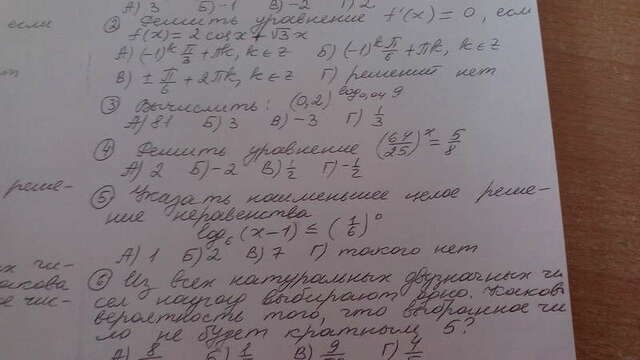 А) 3 Б) -1 В) -2 Г) 2
если
② Решить уравнение f'(x) = 0, если
f(x) = 2 cos x + √3 x
А) (-1)^k π/3 + πk, k ∈ z Б) (-1)^k π/6 + πk, k ∈ z
В) ± π/6 + 2πk, k ∈ z Г) решений нет
③ Вычислить: (0,2)^log₀,₀₄ 9
А) 81 Б) 3 В) -3 Г) 1/3
④ Решить уравнение (64/25)^x = 5/8
А) 2 Б) -2 В) 1/2 Г) -1/2
реше-
⑤ Указать наименьшее целое реше-
ние неравенства
log₆ (x-1) ≤ (1/6)^0
А) 1 Б) 2 В) 7 Г) такого нет
чи-
⑥ Из всех натуральных двузначных чи
сел наугад выбирают одно. Какова
вероятность того, что выбранное чи
ло не будет кратным 5?
А) 8 Б) 1 В) 9 Г) 4